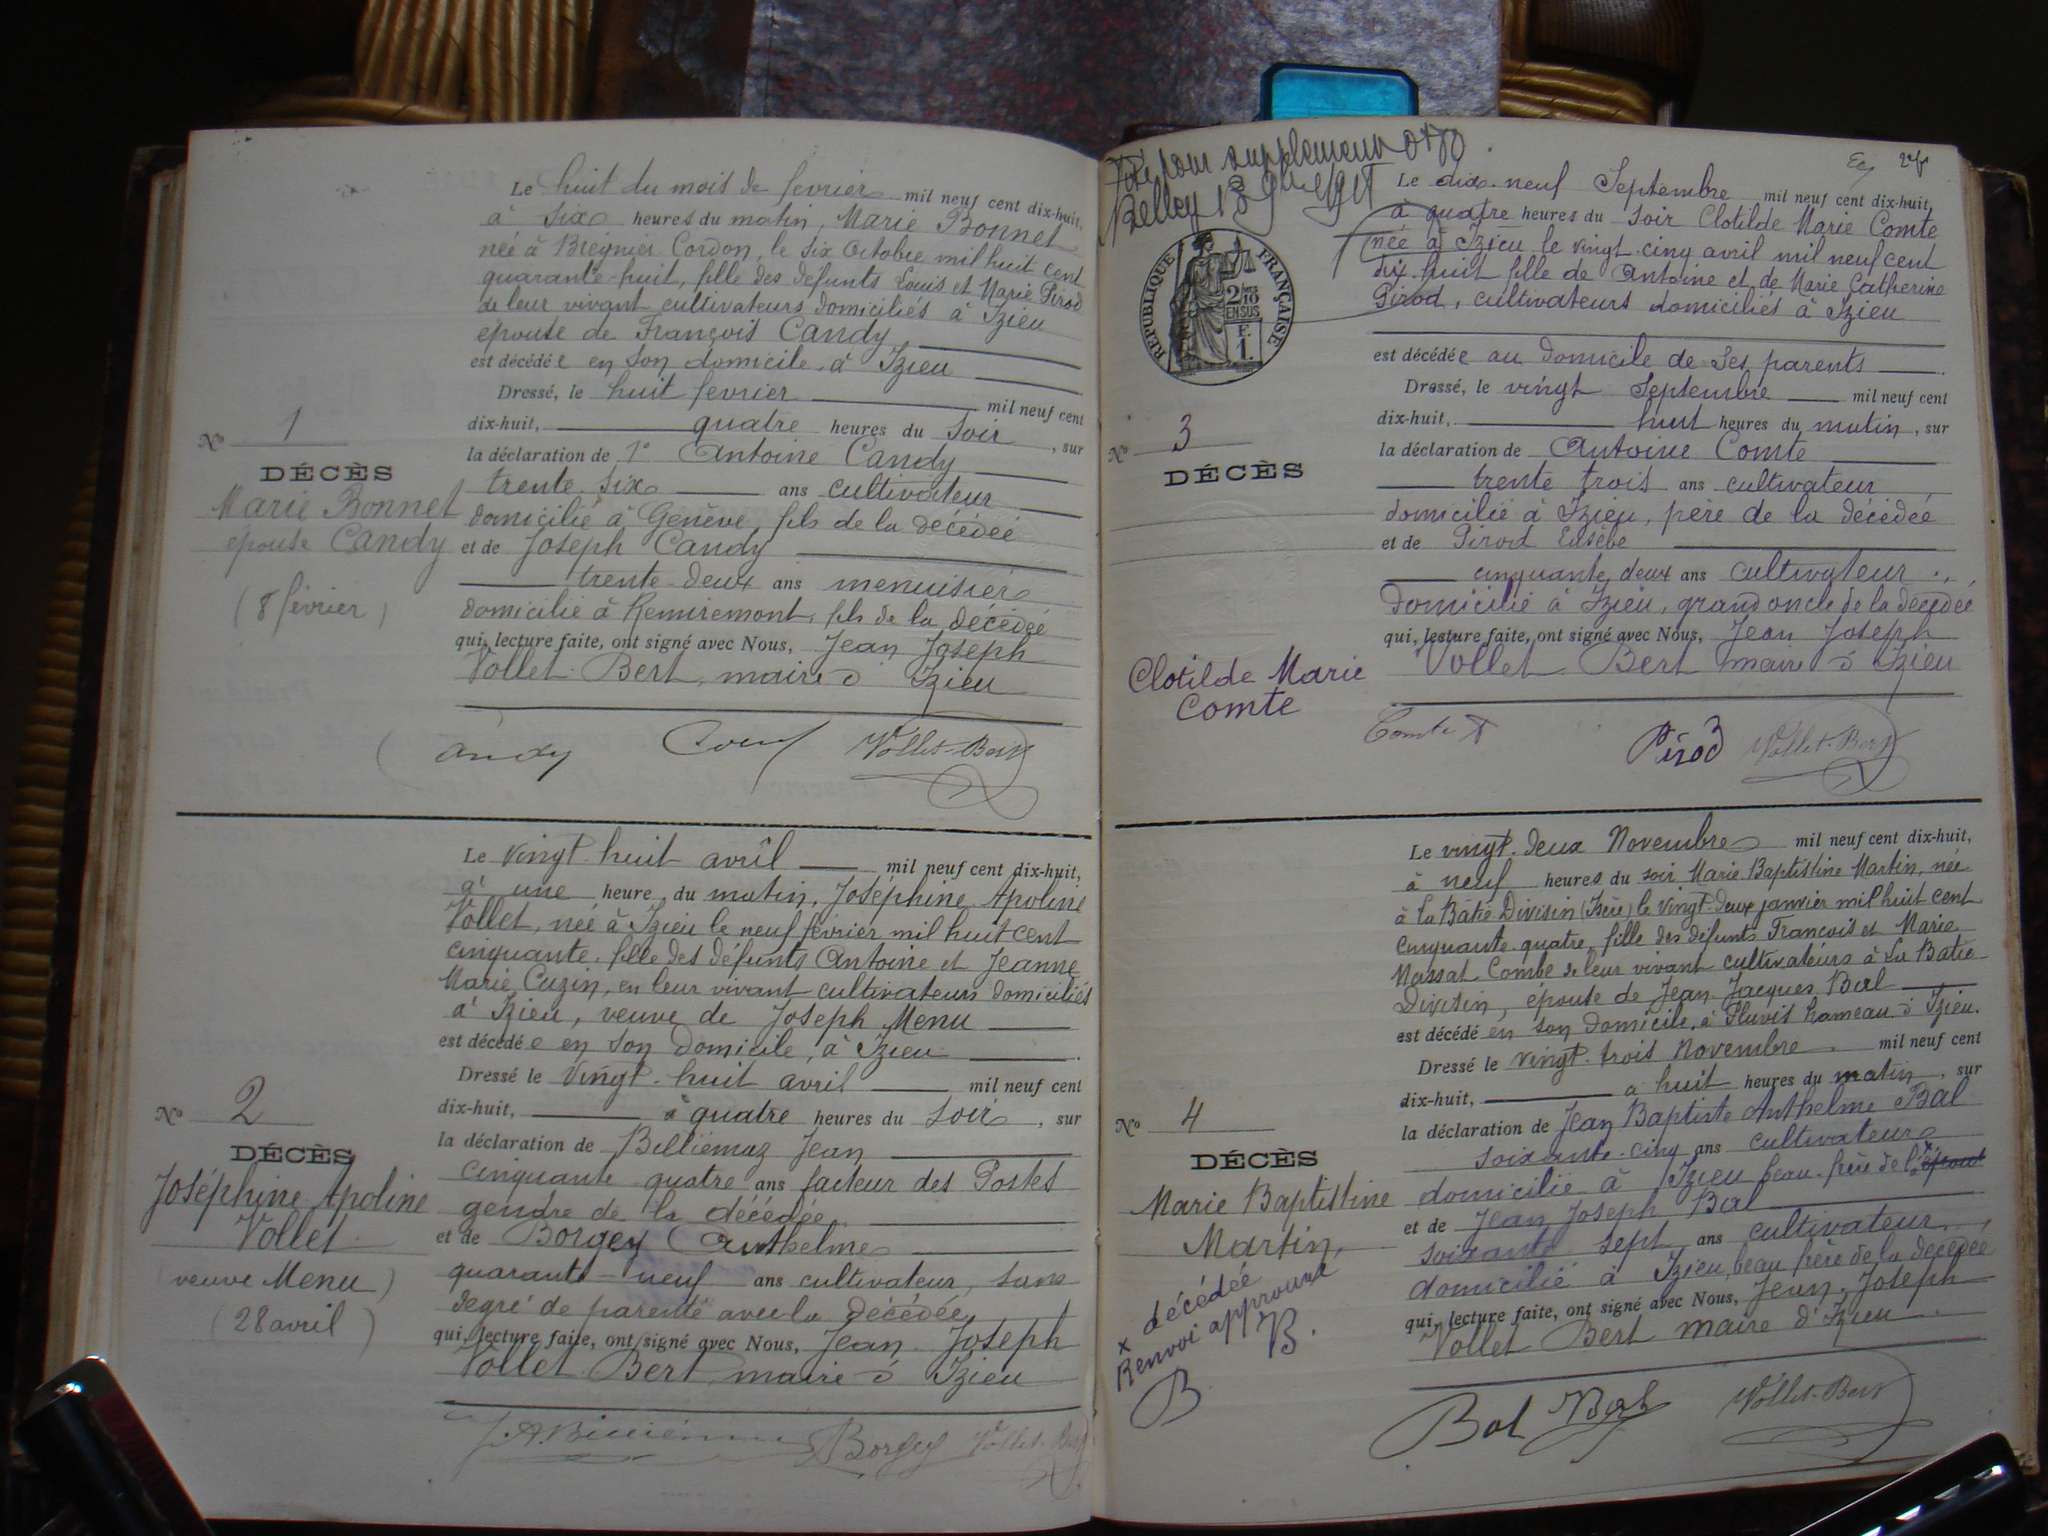 Le huit du mois de fevrier mil neuf cent dix-huit,
à six heures du matin, Marie Bonnet
née à Brégnier Cordon, le six Octobre mil huit cent
quarante-huit, fille des défunts Louis et Marie Pirod
de leur vivant cultivateurs domiciliés à Izieu
epouse de François Candy
est décédée en son domicile, à Izieu
Dressé, le huit fevrier mil neuf cent
dix-huit, quatre heures du soir, sur
la déclaration de 1° Antoine Candy
trente six ans cultivateur
domicilié à Genève, fils de la décédée
et de Joseph Candy
trente-deux ans menuisier
domicilié à Remiremont, fils de la décédée
qui, lecture faite, ont signé avec Nous, Jean Joseph
Vollet-Bert, maire d Izieu
Candy Vollet-Bert
No 1
DÉCÈS
Marie Bonnet
epouse Candy
(8 février)
Le vingt-huit avril mil neuf cent dix-huit,
à une heure du matin, Joséphine Apoline
Vollet, née à Izieu le neuf février mil huit cent
cinquante, fille des défunts Antoine et Jeanne
Marie Cuzin, en leur vivant cultivateurs domiciliés
à Izieu, veuve de Joseph Menu
est décédée en son domicile, à Izieu
Dressé le vingt-huit avril mil neuf cent
dix-huit, à quatre heures du soir, sur
la déclaration de Belliemaz Jean
cinquante quatre ans facteur des Postes
gendre de la décédée
et de Borgey Anthelme
quarante-neuf ans cultivateur, sans
degré de parenté avec la décédée
qui, lecture faite, ont signé avec Nous, Jean Joseph
Vollet Bert, maire d Izieu
Borgey Vollet-Bert
No 2
DÉCÈS
Joséphine Apoline
Vollet
(veuve Menu)
(28 avril)
Belley
RÉPUBLIQUE FRANÇAISE
2/10 EN SUS
F. 1.
Le dix-neuf Septembre mil neuf cent dix-huit,
à quatre heures du soir Clotilde Marie Comte
née à Izieu le vingt-cinq avril mil neuf cent
dix huit fille de Antoine et de Marie Catherine
Pirod, cultivateurs domiciliés à Izieu
est décédée au domicile de ses parents
Dressé, le vingt Septembre mil neuf cent
dix-huit, huit heures du matin, sur
la déclaration de Antoine Comte
trente trois ans cultivateur
domicilié à Izieu, père de la décédée
et de Pirod Eusèbe
cinquante deux ans cultivateur,
domicilié à Izieu, grand oncle de la décédée
qui, lecture faite, ont signé avec Nous, Jean Joseph
Vollet Bert maire d Izieu
Comte Pirod Vollet-Bert
No 3
DÉCÈS
Clotilde Marie
Comte
Le vingt-deux Novembre mil neuf cent dix-huit,
à neuf heures du soir Marie Baptistine Martin, née
à La Bâtie Divisin (Isère) le vingt-deux janvier mil huit cent
cinquante-quatre, fille des défunts François et Marie
Massat-Combe de leur vivant cultivateurs à La Bâtie
Divisin, épouse de Jean Jacques Bal
est décédé en son domicile, à Pluvis hameau d Izieu.
Dressé le vingt-trois Novembre mil neuf cent
dix-huit, à huit heures du matin, sur
la déclaration de Jean Baptiste Anthelme Bal
soixante-cinq ans cultivateur
domicilié à Izieu beau-frère de l'épouse x
et de Jean Joseph Bal
soixante sept ans cultivateur,
domicilié à Izieu, beau frère de la décédée
qui, lecture faite, ont signé avec Nous, Jean Joseph
Vollet Bert maire d'Izieu
Bal Bal Vollet-Bert
No 4
DÉCÈS
Marie Baptistine
Martin
x décédée
Renvoi approuvé
B B.